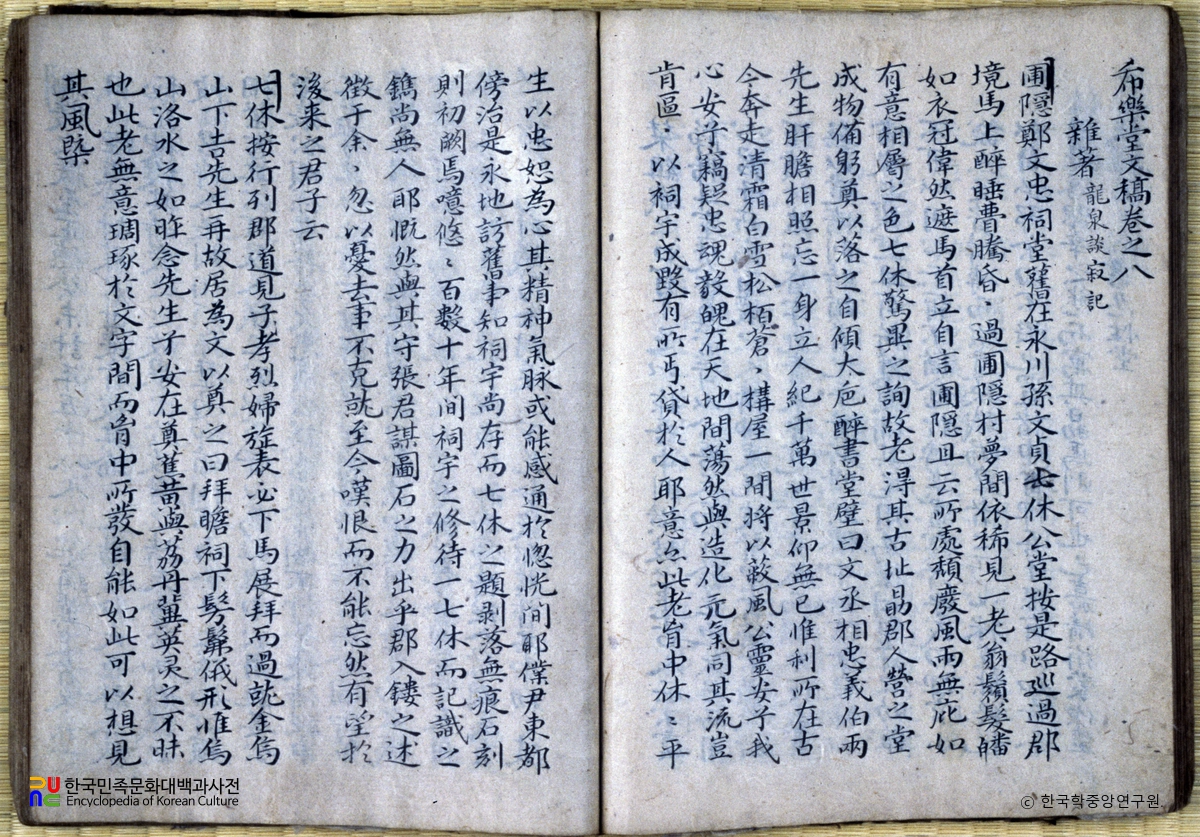 希樂堂文稿卷之八
雜著 龍泉談寂記
圃隱鄭文忠祠堂舊在永川孫文貞七休公堂按是路巡過郡
境馬上醉睡瞢騰昏〻過圃隱村夢間依稀見一老翁鬚髮皤
如衣冠偉然遮馬首立自言圃隱且云所處頹廢風雨無庇如
有意相屬之色七休驚異之詢故老得其古址勗郡人營之堂
成物備躬奠以落之自傾大卮醉書堂壁曰文丞相忠義伯兩
先生肝膽相照忘一身立人紀千萬世景仰無已惟利所在古
今奔走清霜白雪松栢蒼〻構屋一間將以蔽風公靈安子我
心安子竊疑忠魂毅魄在天地間蕩然與造化元氣同其流豈
肯區〻以祠宇成毀有所丐貸於人耶意亦此老胷中休〻平
生以忠恕為心其精神氣脉或能感通於惚恍間耶僕尹東都
傍治是永地訪舊事知祠宇尚存而七休之題剥落無痕石刻
則初闕焉噫悠〻百數十年間祠宇之修待一七休而記識之
鐫尚無人耶慨然與其守張君謀圖石之力出乎郡入鏤之述
徵于余〻忽以憂去事不克就至今嘆恨而不能忘然有望於
後来之君子云
七休按行列郡道見子孝烈婦旌表必下馬展拜而過就金烏
山下吉先生再故居為文以奠之曰拜瞻祠下髣髴儀形惟烏
山洛水之如昨念先生子安在奠蕉黄與荔丹冀英灵之不昧
也此老無意琱琢於文字間而胷中所發自能如此可以想見
其風槩
한국민족문화대백과사전
Encyclopedia of Korean Culture
© 한국학중앙연구원